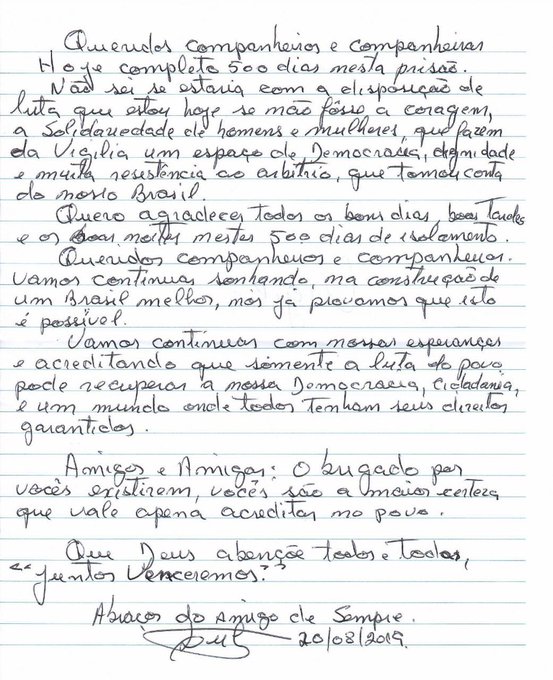 Queridos companheiros e companheiras
Hoje completo 500 dias nesta prisão.
Não sei se estaria com a disposição de
luta que estou hoje se não fôsse a coragem,
a Solidariedade de homens e mulheres, que fazem
da Vigilia um espaço de Democracia, dignidade
e muita resistência ao arbitrio, que tomou conta
do nosso Brasil.
Quero agradecer todos os bons dias, boas Tardes
e os boas noites nestes 500 dias de isolamento.
Queridos companheiros e companheiros.
Vamos continuar sonhando, na construção de
um Brasil melhor, nós já provamos que isto
é possível.
Vamos continuar com nossas esperanças
e acreditando que sòmente a luta do povo
pode recuperar a nossa Democracia, Cidadania,
e um mundo onde todos Tenham seus direitos
garantidos.
Amigos e Amigas: Obrigado por
vocês existirem, vocês são a maior certeza
que vale apena acreditar no povo.
Que Deus abençõe todos e todas,
“Juntos Venceremos.”
Abraços do amigo de Sempre.
20/08/2019.